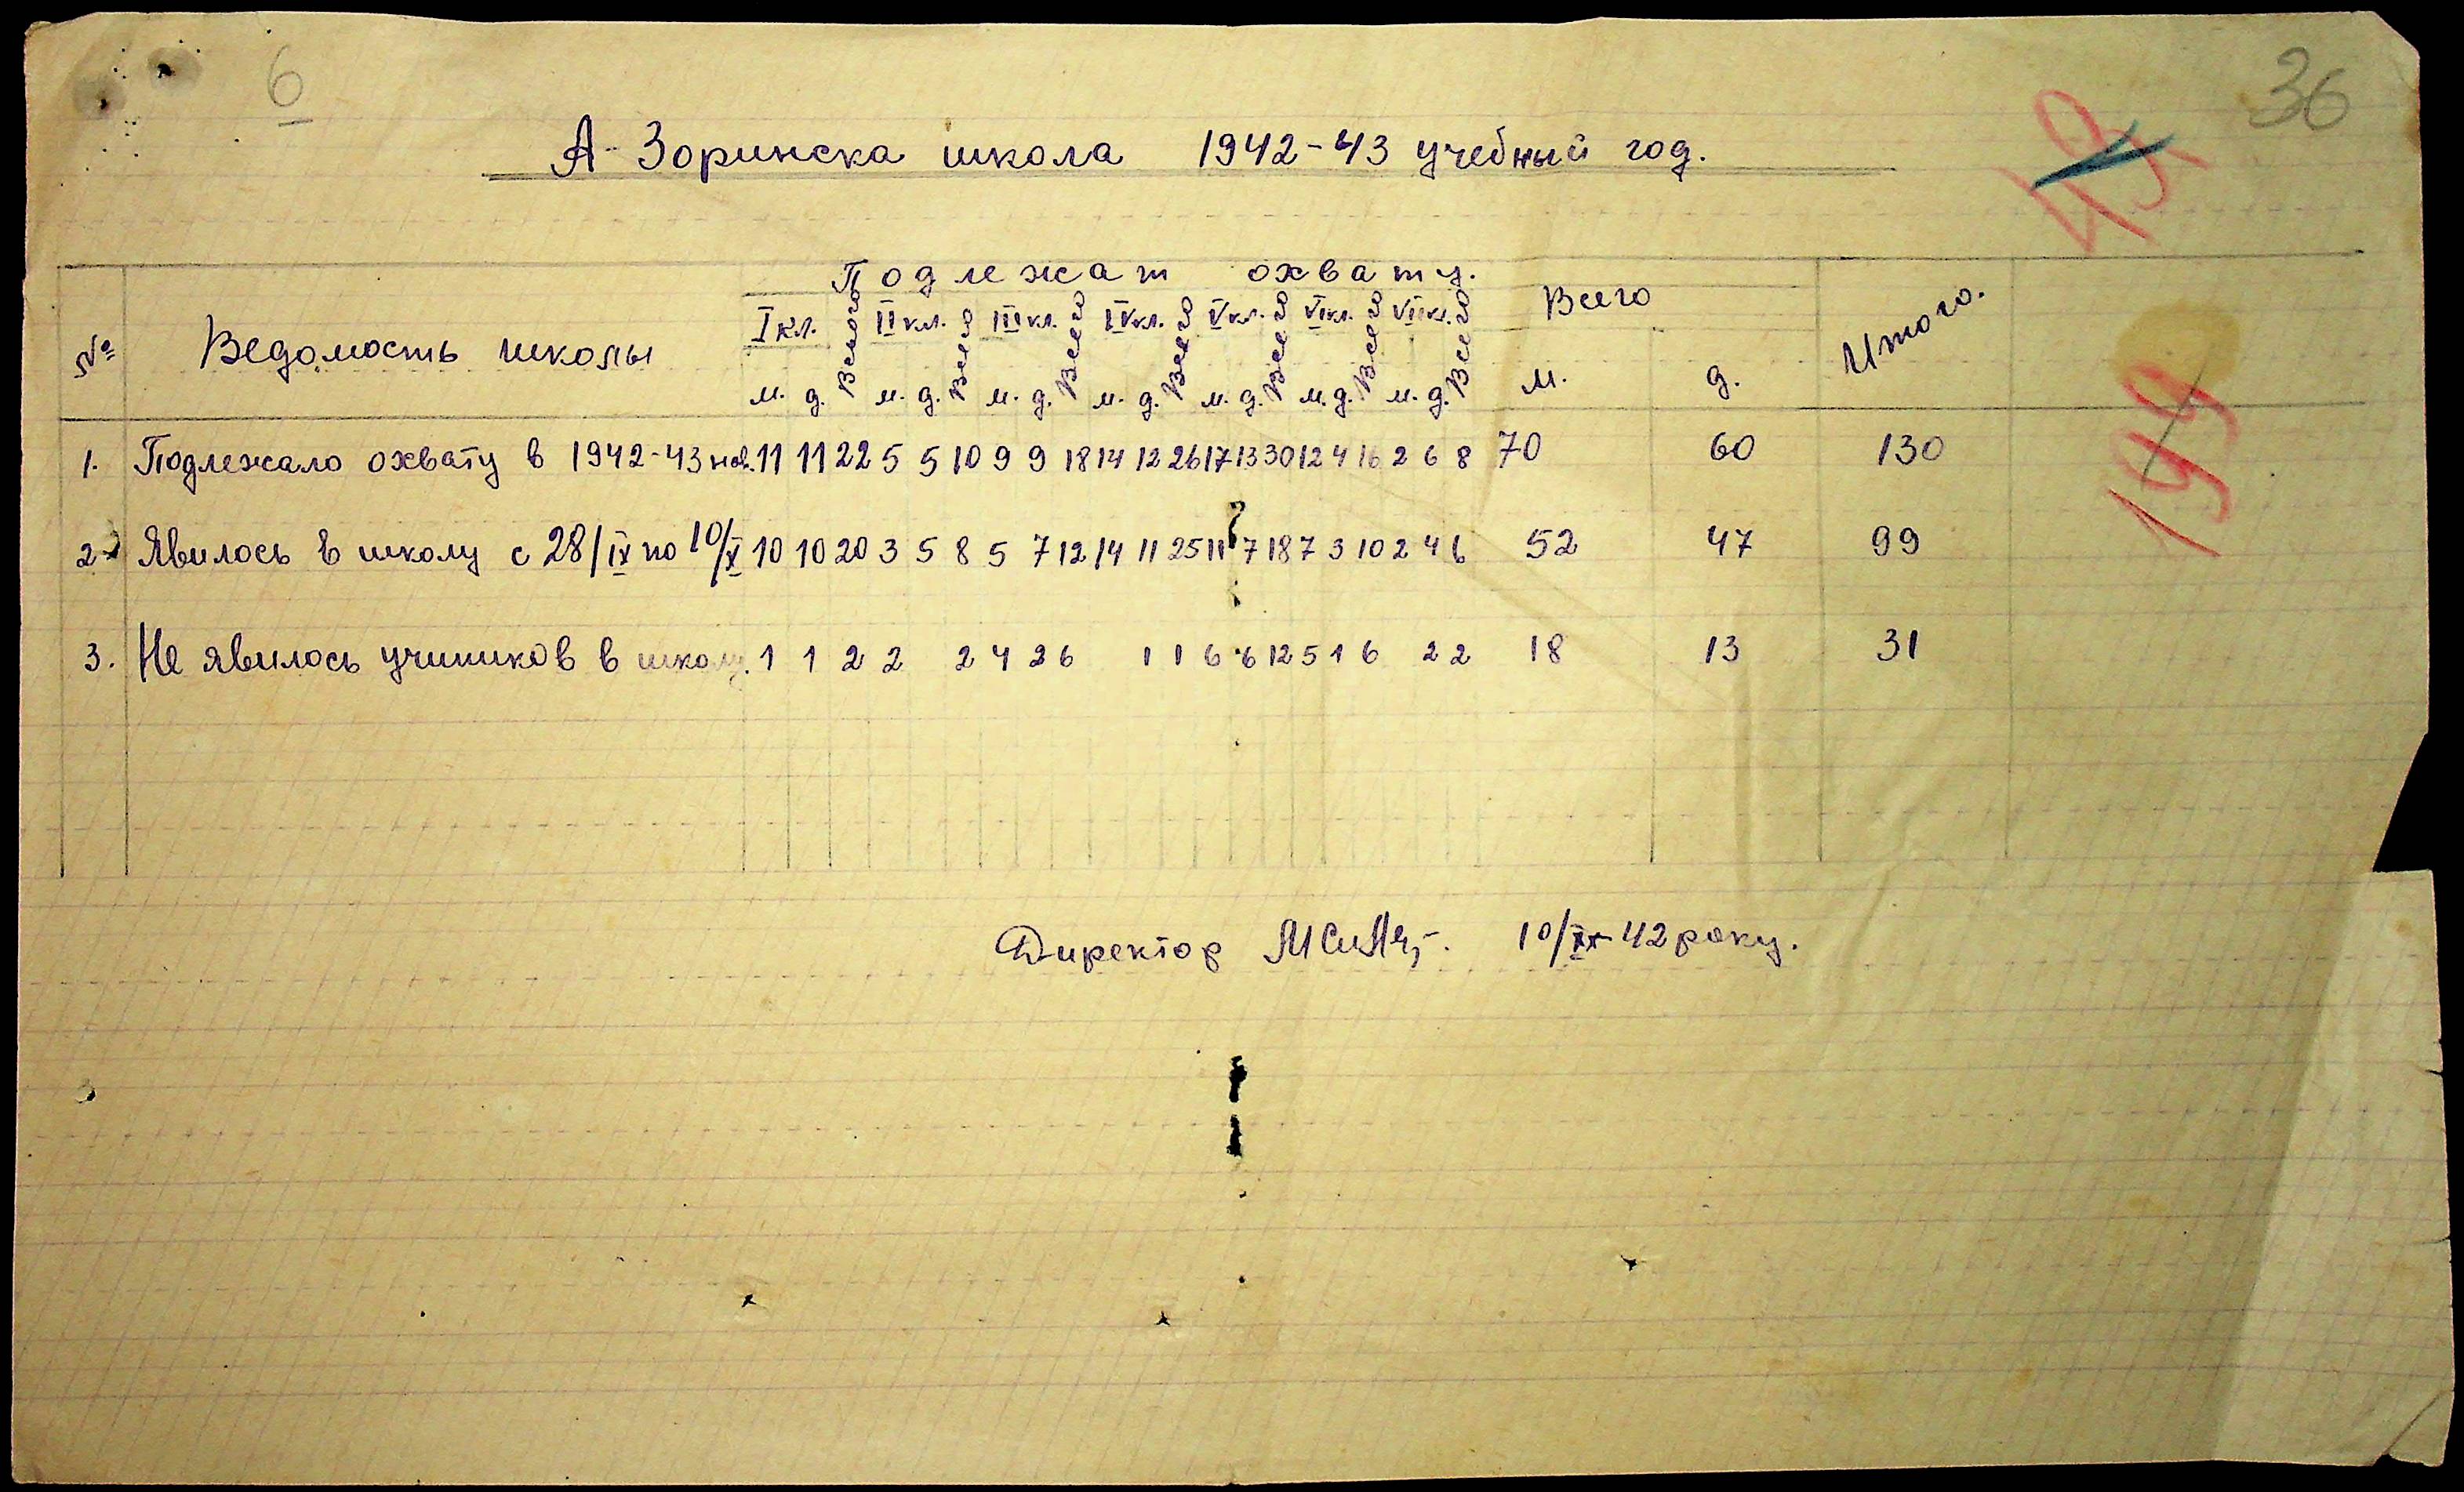 6
36
А-Зоринска школа 1942-43 учебный год.
Подлежат охвату.
№ Ведомость школы I кл. Всього II кл. Всего III кл. Всего IV кл. Всего V кл. Всего VI кл. Всего VII кл. Всего Всего Итого.
м. д. м. д. м. д. м. д. м. д. м. д. м. д. м. д.
1. Подлежало охвату в 1942-43 11 11 22 5 5 10 9 9 18 14 12 26 17 13 30 12 4 16 2 6 8 70 60 130
2. Явилось в школу с 28/IX по 10/X 10 10 20 3 5 8 5 7 12 14 11 25 11 7 18 7 3 10 2 4 6 52 47 99
3. Не явилось учиников в школу. 1 1 2 2 2 4 2 6 1 1 6 6 12 5 1 6 2 2 18 13 31
199
Директор 10/X-42 року.